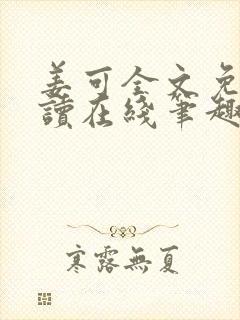 姜可全文免
讀在綫筆趣
寒露無夏